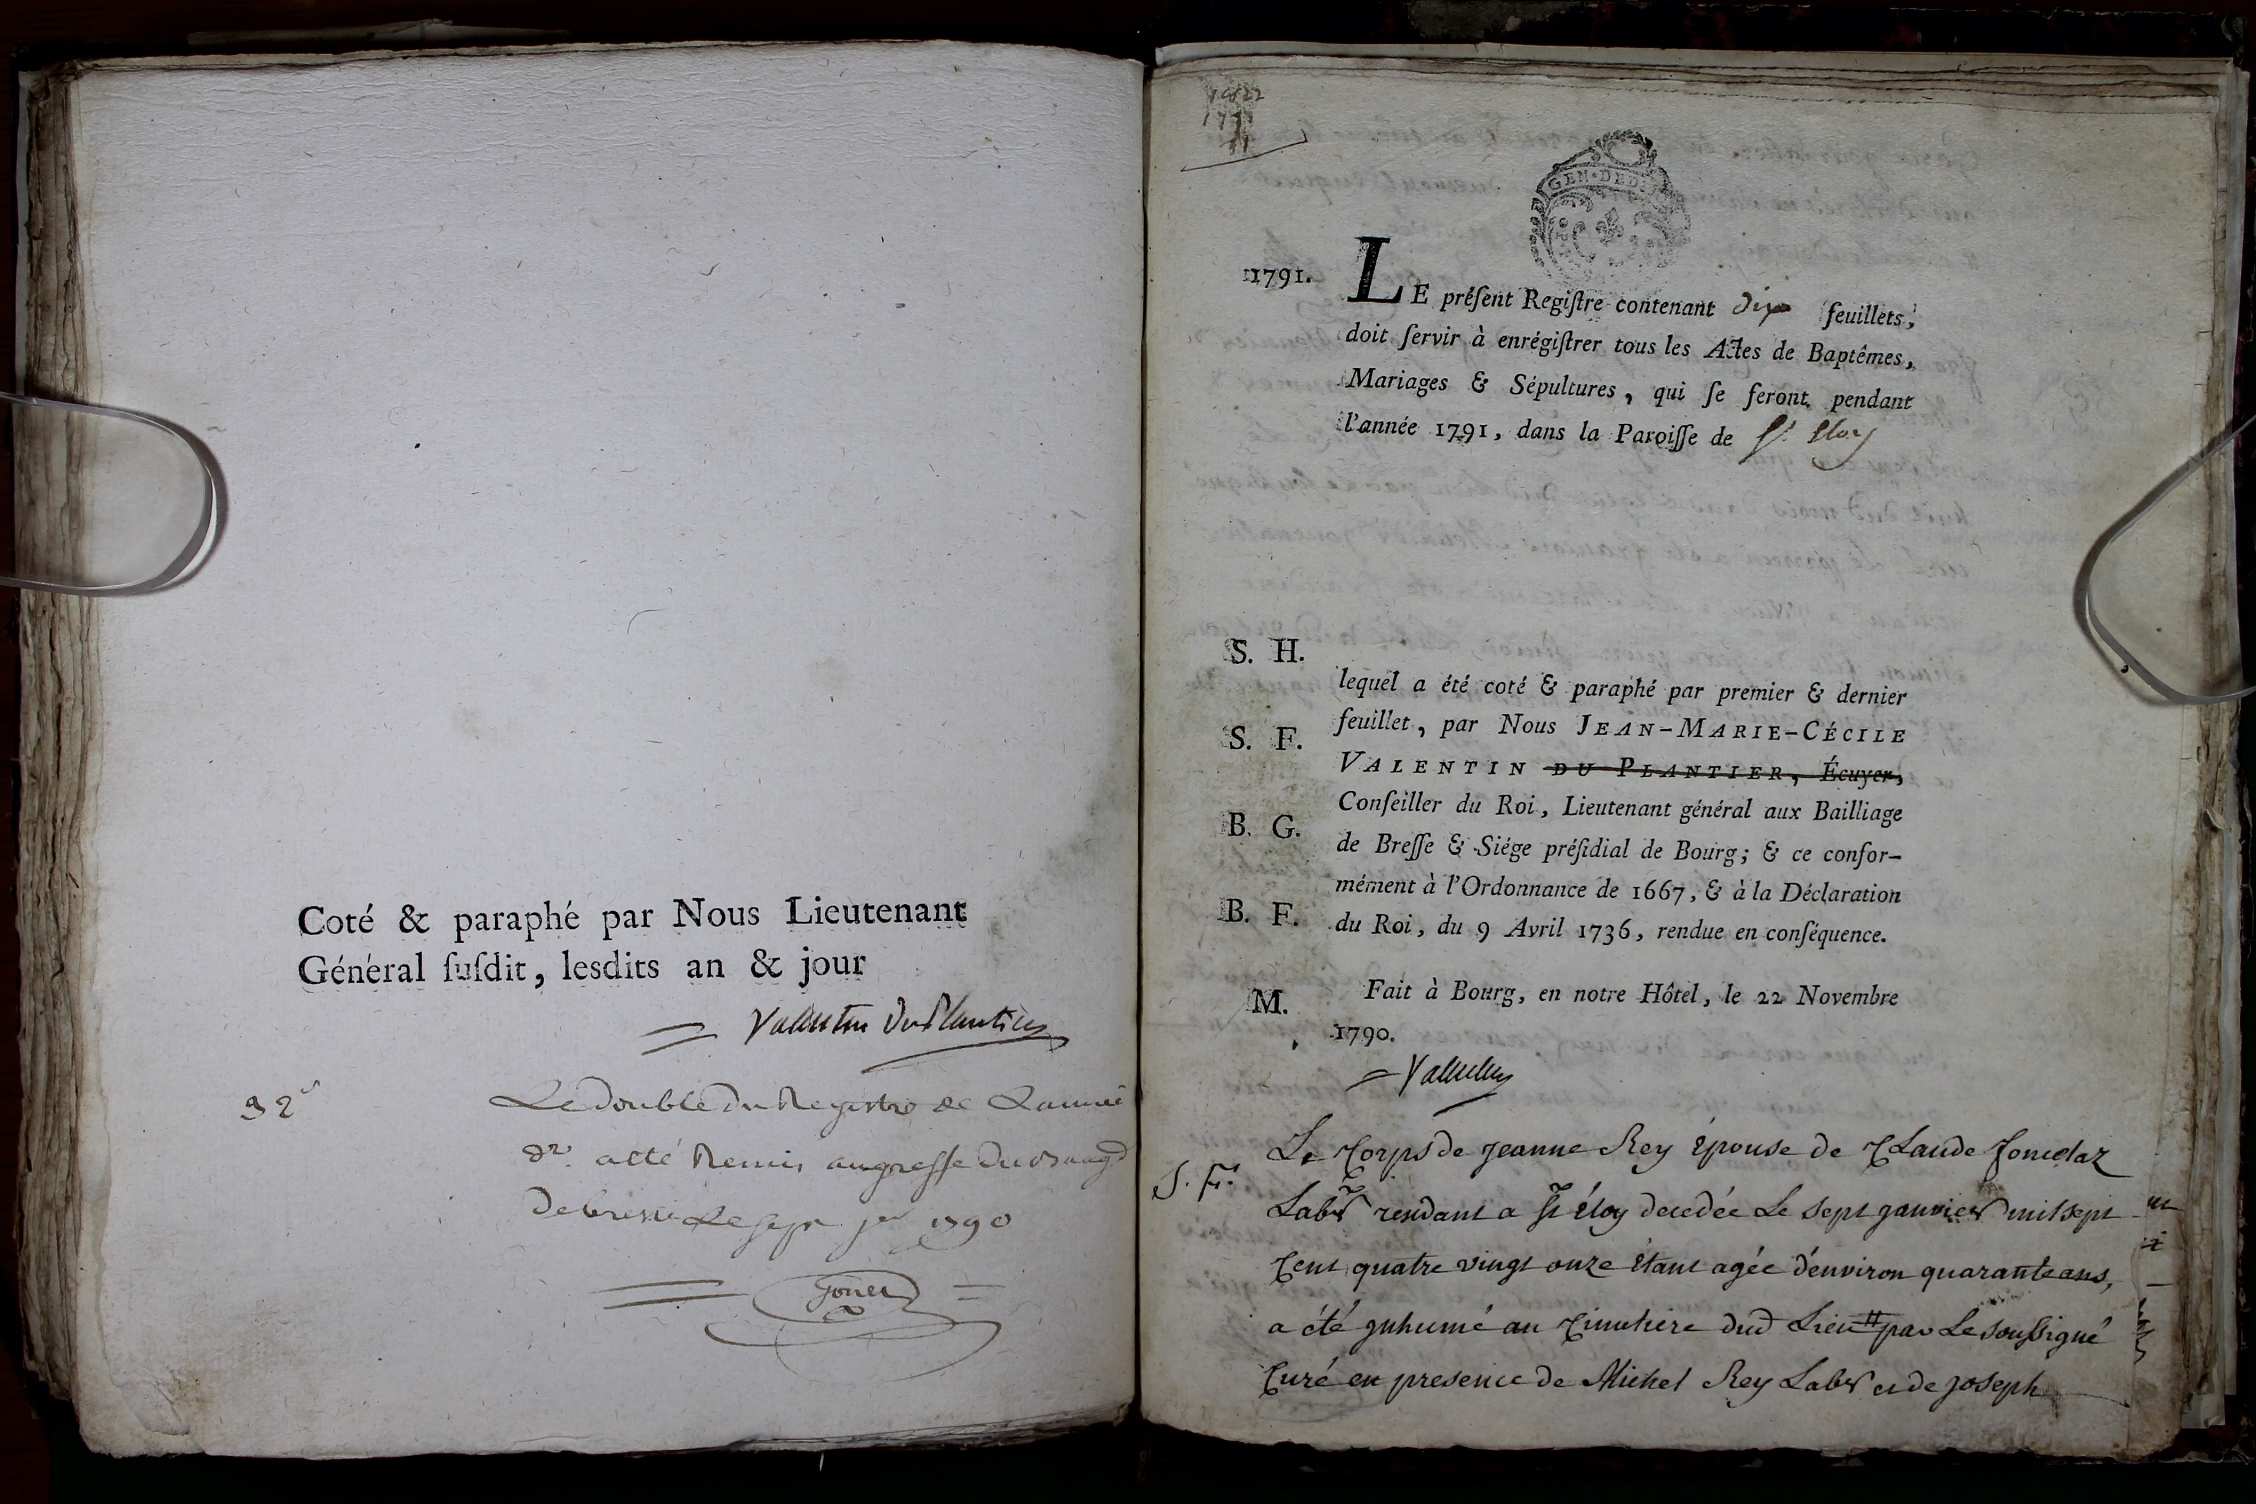 Coté & paraphé par Nous Lieutenant
Général ſuſdit, lesdits an & jour
Valentin Duplantier
Le double du Registre de L'année
a été Remis au greffe du
de bresse Le sept 1790
1791.
GEN. DED.
LE préſent Regiſtre contenant dix feuillets,
doit ſervir à enrégiſtrer tous les Actes de Baptêmes,
Mariages & Sépultures, qui ſe feront pendant
l'année 1791, dans la Paroiſſe de St Eloy
S. H.
lequel a été coté & paraphé par premier & dernier
feuillet, par Nous JEAN-MARIE-CÉCILE
S. F.
VALENTIN DU PLANTIER, Écuyer,
Conſeiller du Roi, Lieutenant général aux Bailliage
B. G.
de Breſſe & Siége préſidial de Bourg; & ce confor-
mément à l'Ordonnance de 1667, & à la Déclaration
B. F.
du Roi, du 9 Avril 1736, rendue en conſéquence.
M.
Fait à Bourg, en notre Hôtel, le 22 Novembre
1790.
Valentin
Le Corps de jeanne Rey épouse de Claude
S. F.
Labr résidant a St Eloy decedée Le sept janvier mil sept
Cent quatre vingt onze étant agée d'environ quarante ans,
a été inhumé au Cimetiere dud Lieu # par Le soussigné
Curé en presence de Michel Rey Labr et de joseph